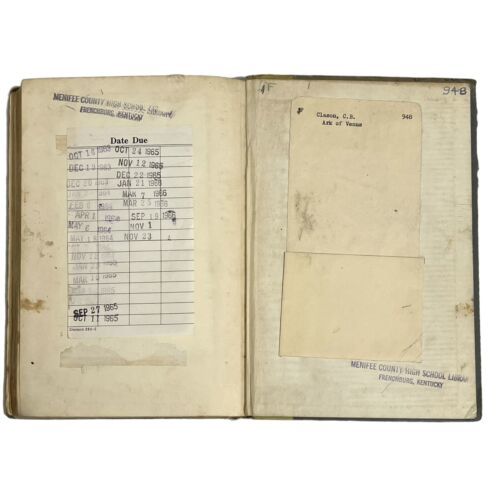 MENIFEE COUNTY HIGH SCHOOL
FRENCHBURG, KENTUCKY
Date Due
OCT 1 1963 OCT 24 1965
DEC 1 1963 NOV 12 1965
DEC 20 1963 DEC 22 1965
JAN 21 1966
1964 MAR 7 1966
FEB 1964 MAR 23 1966
APR 1 1964 SEP 19 1966
MAY 6 1964 NOV 1
MAY 1 1964 NOV 23
NOV
JAN
MAR
SEP 27 1965
OCT 11 1965
F
948
F
Clason, C.B. 948
Ark of Venus
MENIFEE COUNTY HIGH SCHOOL LIBRAR
FRENCHBURG, KENTUCKY